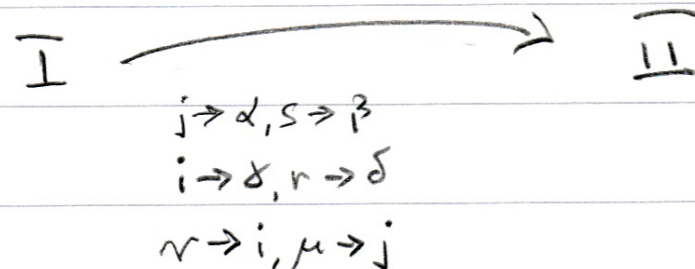 I → II
j → α, s → β
i → γ, r → δ
ν → i, μ → j